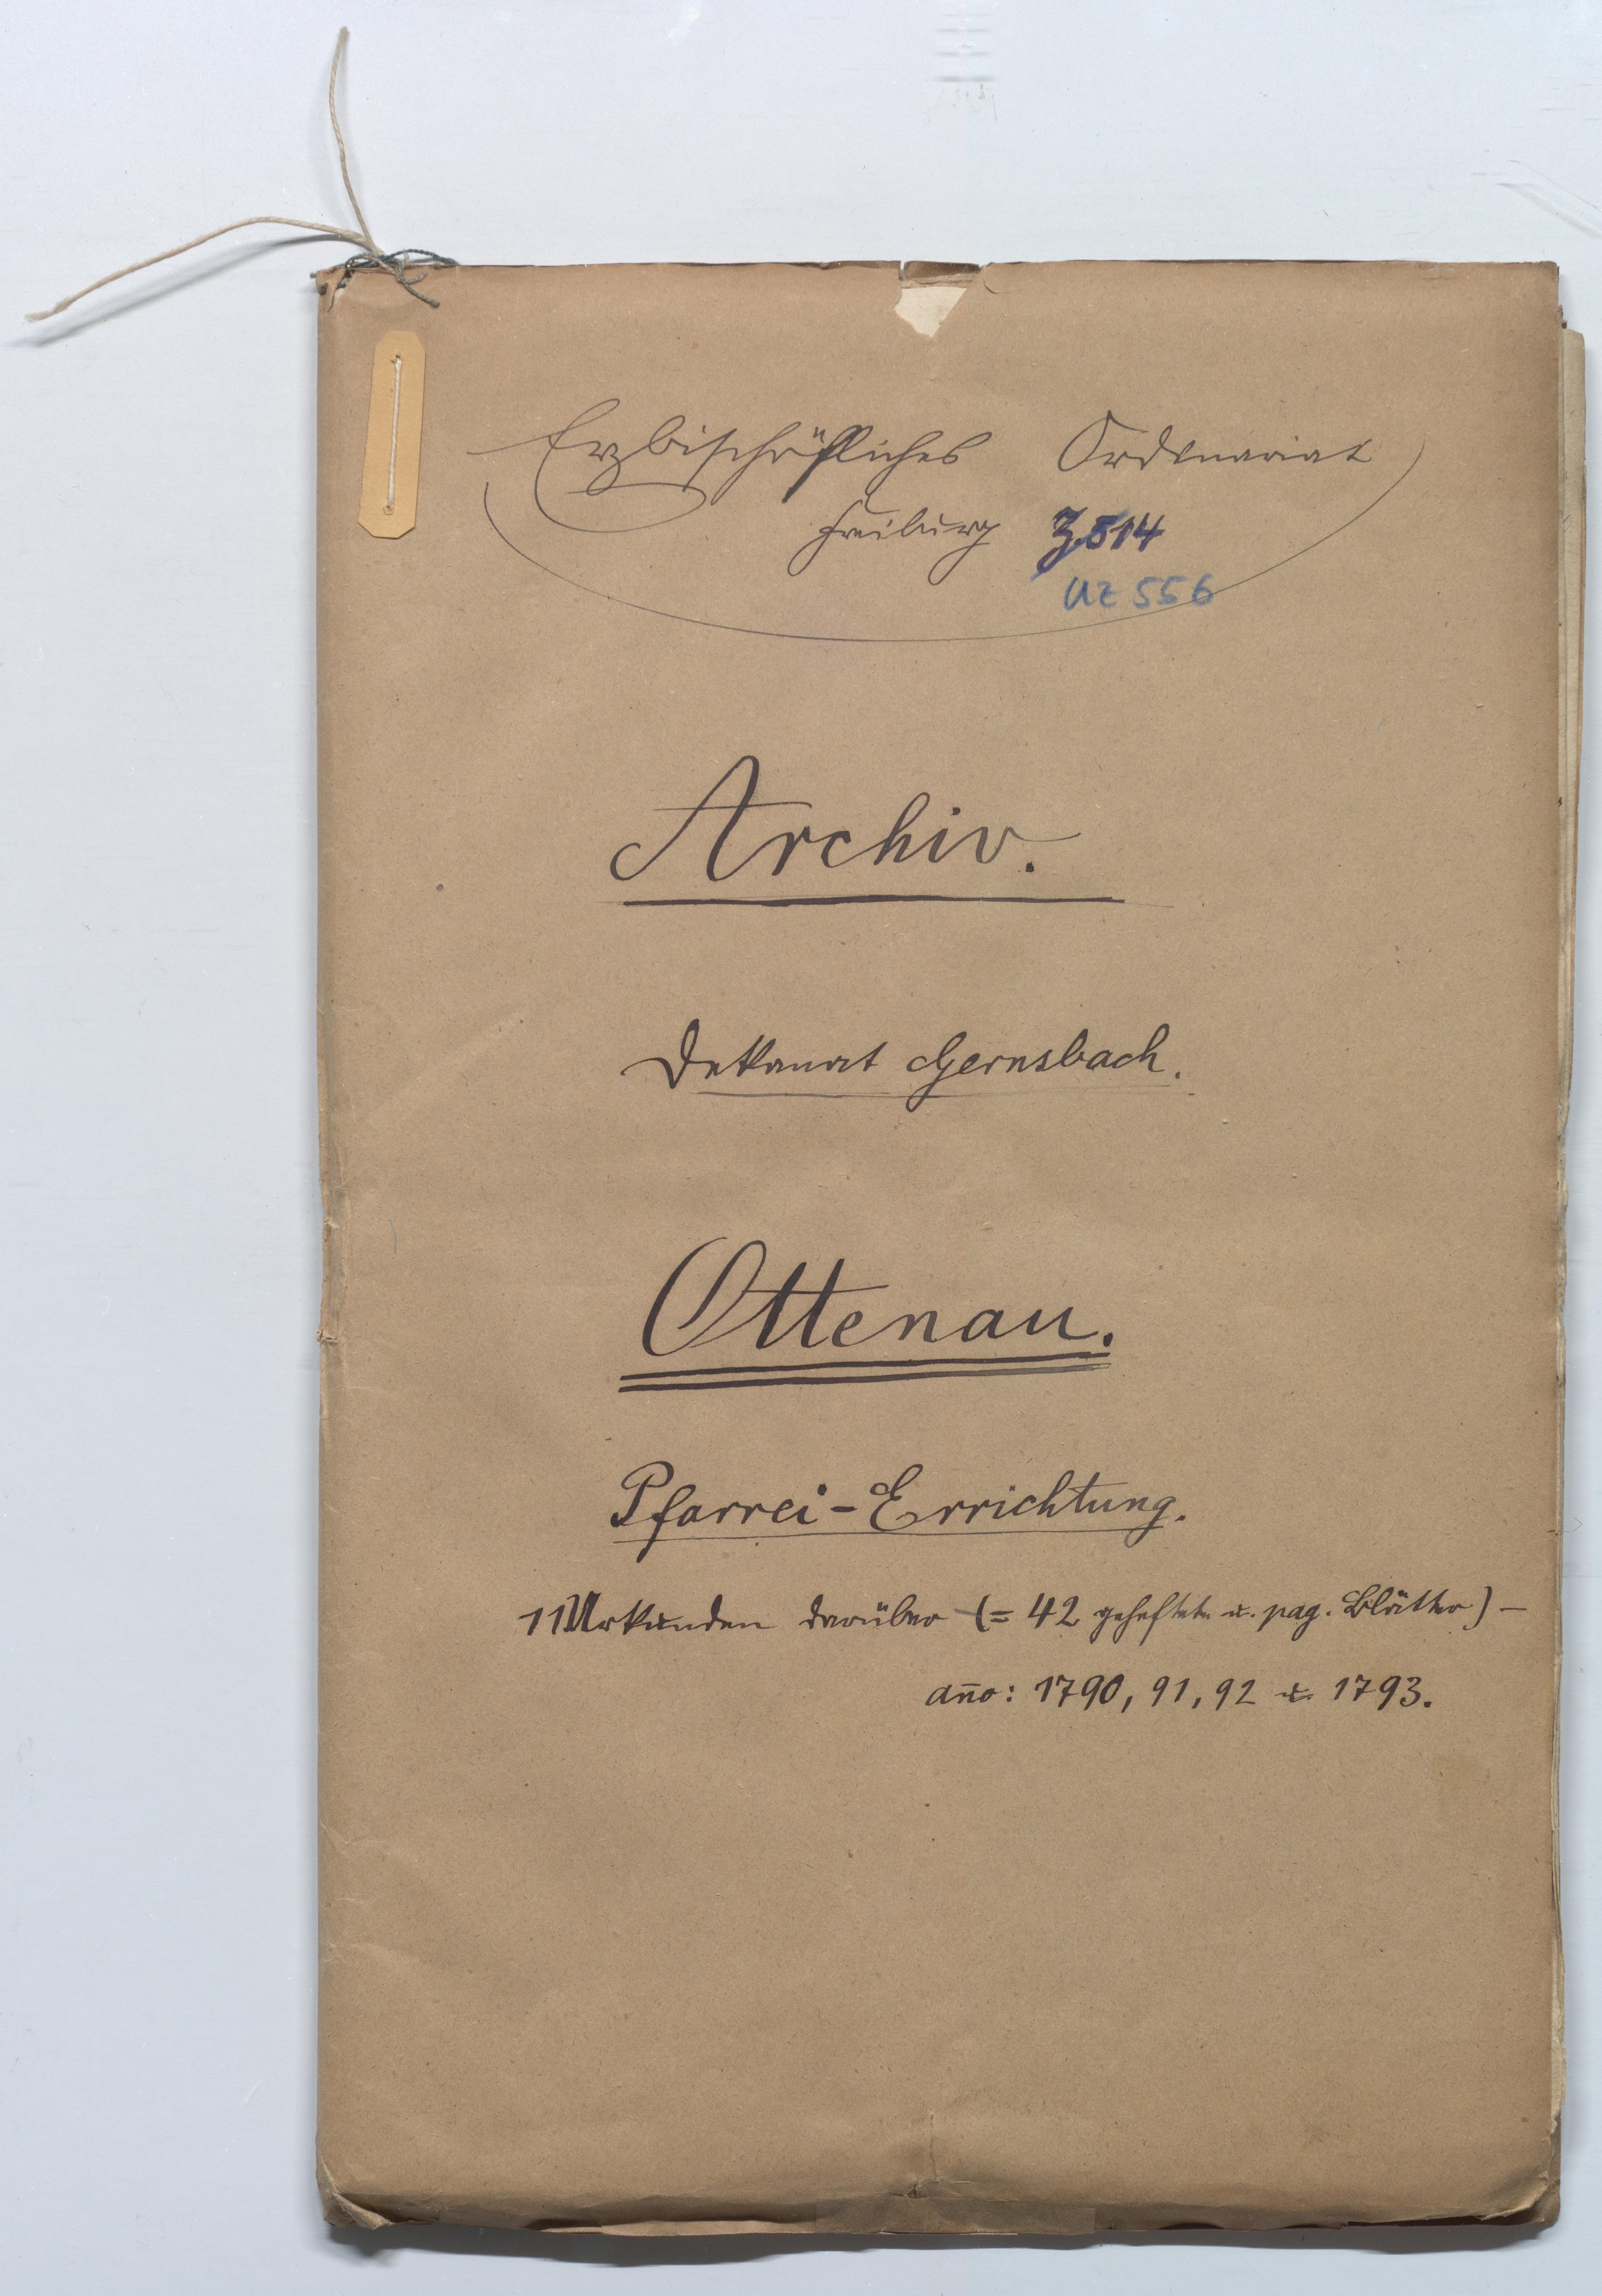 Erzbischöfliches Ordinariat
Freiburg Z.514
UZ 556
Archiv.
Dekanat Gernsbach.
Ottenau.
Pfarrei-Errichtung.
11 Urkunden darüber (= 42 geheftete u. pag. Blätter) –
año: 1790, 91, 92 u. 1793.